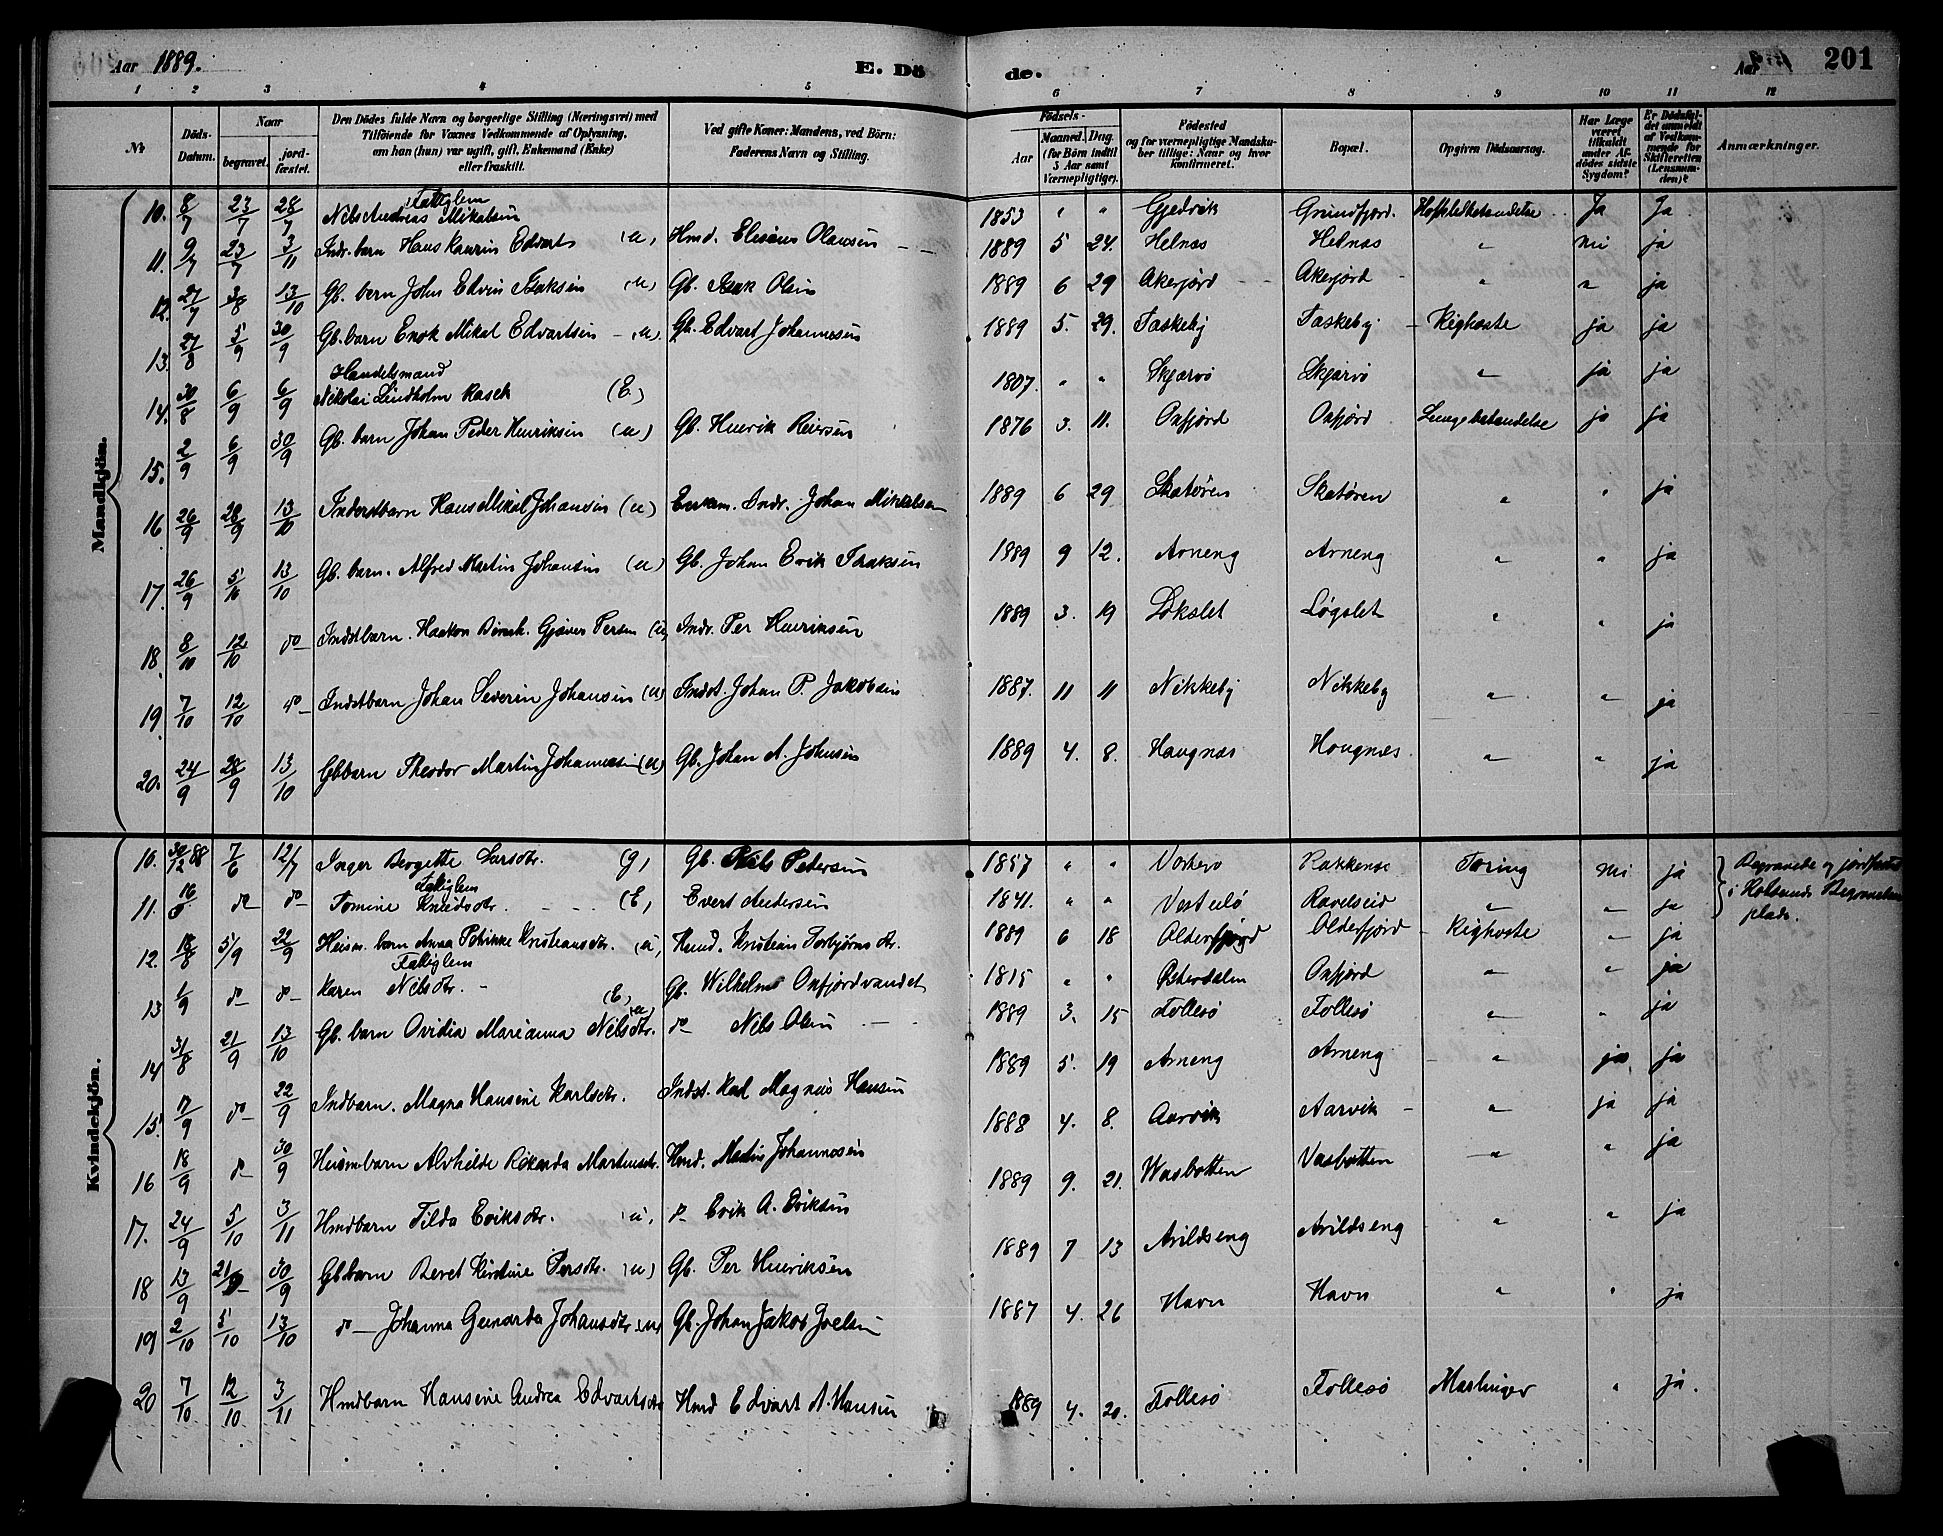 Aar 1889.
E. Dö de.
Aar 201
1 2 3 4 5 6 7 8 9 10 11 12
No
Döds-Datum.
Naar
begravet.
jord-fæstet.
Den Dödes fulde Navn og borgerlige Stilling (Næringsvei) med
Tilföiende for Voxnes Vedkommende af Oplysning,
om han (hun) var ugift, gift, Enkemand (Enke)
eller fraskilt.
Ved gifte Koner: Mandens, ved Börn:
Faderens Navn og Stilling.
Födsels-
Aar Maaned. Dag.
(for Börn indtil
5 Aar samt
Værnepligtige).
Födested
og for værnepligtige Mandsku-
ber tillige: Naar og hvor
konfirmeret.
Bopæl.
Opgiven Dödsaarsag.
Har Læge
været
tilkaldt
under Af-
dödes sidste
Sygdom?
Er Dödsfal-
det anmeldt
af Vedkom-
mende for
Skifteretten
(Lensman-
den)?
Anmærkninger.
Mandkjön.
10. 8/7 23/7 28/7 Fattiglem Nils Andreas Mikalsen 1853 " " Gjedvik Grundfjord. Ja Ja
11. 9/7 23/7 3/11 Indr. barn Hans Kaurin Edvart (u) Hmd. Eliseus Olausen 1889 5 24. Helnæs Helnæs " nei ja
12. 27/7 3/8 13/10 Gb. barn John Edvin Isaksen (u) Gb. Isak Olsen 1889 6 29 Akerfjord Akerfjord " " ja
13. 27/8 5/9 30/9 Gb. barn Enok Mikal Edvartsen (u) Gb. Edvart Johannesen 1889 5. 29. Taskeby Taskeby Kighoste ja ja
14. 30/8 6/9 6/9 Handelsmand Nikolai Lindholm Rasch (E.) 1807. " " Skjærvö Skjærvö " ja ja
15. 2/9 6/9 30/9 Gb. barn Johan Peder Henriksen (u) Gb. Henrik Reiersen 1876 3. 11. Oxfjord Oxfjord Lungebetændelse ja ja
16 26/9 28/9 13/10 Inderstbarn Hans Mikal Johansen (u) Enkem. Indr. Johan Mikkelsen 1889 6 29 Skatören Skatören " " ja
17. 26/9 5/10 13/10 Gb. barn. Alfred Martin Johansen (u) Gb. Johan Erik Isaksen 1889 9 12. Arneng Arneng " " ja
18. 8/10 12/10 do Indstbarn. Haakon Gjæver Persen (u) Indr. Per Henriksen 1889 3. 19 Lökslet Løgslet " " ja
19. 7/10 12/10 do Indstbarn Johan Severin Johansen (u) Indst. Johan P. Jakobsen 1887. 11 11 Nikkeby Nikkeby " " ja
20. 24/9 28/9 13/10 Gbbarn Theodor Martin Johannesen (u) Gb. Johan A. Johnsen 1889 4. 8. Haugnæs Hougnæs " " ja
Kvindekjön.
10. 30/12 88 7/6 12/7 Inger Bergette Larsdtr. (g) Gb. Nils Petersen 1857 " " Vorterø Rakkenæs Tæring nei ja
Begravede og jordfæstet
i Rotsunds Begravelses
plads.
11. do do Fattiglem Tomine Knudsdtr. (E) Evert Andersen 1841. " " Ravelseid " " ja
12. 18/8 5/9 22/9 Husm. barn Anna Kristiansdtr. (u) Hmd. Kristian Torbjørns 1889 6 18 Olderfjord Olderfjord Kighoste " ja
13 1/9 do do Fattiglem Karen Nilsdtr. (E) Gb. Wilhelm Oxfjordvandet 1815 " " Østerdalen Oxfjord " " ja
14 31/8 21/9 13/10 Gb. barn Ovidia Marianna Nilsdtr. (u) do Nils Olsen 1889 3. 15 Follesø Follesø " " ja
15. 7/9 do 22/9 Indbarn. Magna Hansine Karlsdtr. Indst. Karl Magnus Hansen 1889 5. 19 Arneng Arneng " ja ja
16 18/9 do 30/9 Husmbarn Alvhilde Rikarda Martinsdtr. Hmd. Martin Johannesen 1888 4. 8. Aarvik Aarvik " ja ja
17. 24/9 5/10 3/11 Hmdbarn Tilda Eriksdtr. (u) do Erik A. Eriksen 1889 9. 21. Wasbotten Vasbotten " " ja
18 13/9 21/9 30/9 Gbbarn Beret Kirstine Persdtr. (u) Gb. Per Henriksen 1889 7 13 Arildseng Arildseng " " ja
19 2/10 5/10 13/10 do Johanna Gunarda Johansdtr (u) Gb. Johan Jakob Joelsen 1887 4. 26 Havn Havn " " ja
20 7/10 12/10 3/11 Hmdbarn Hansine Andrea Edvartsdtr Hmd Edvart A. Hansen 1889 4. 20. Follesø Follesø Mæslinger " ja.